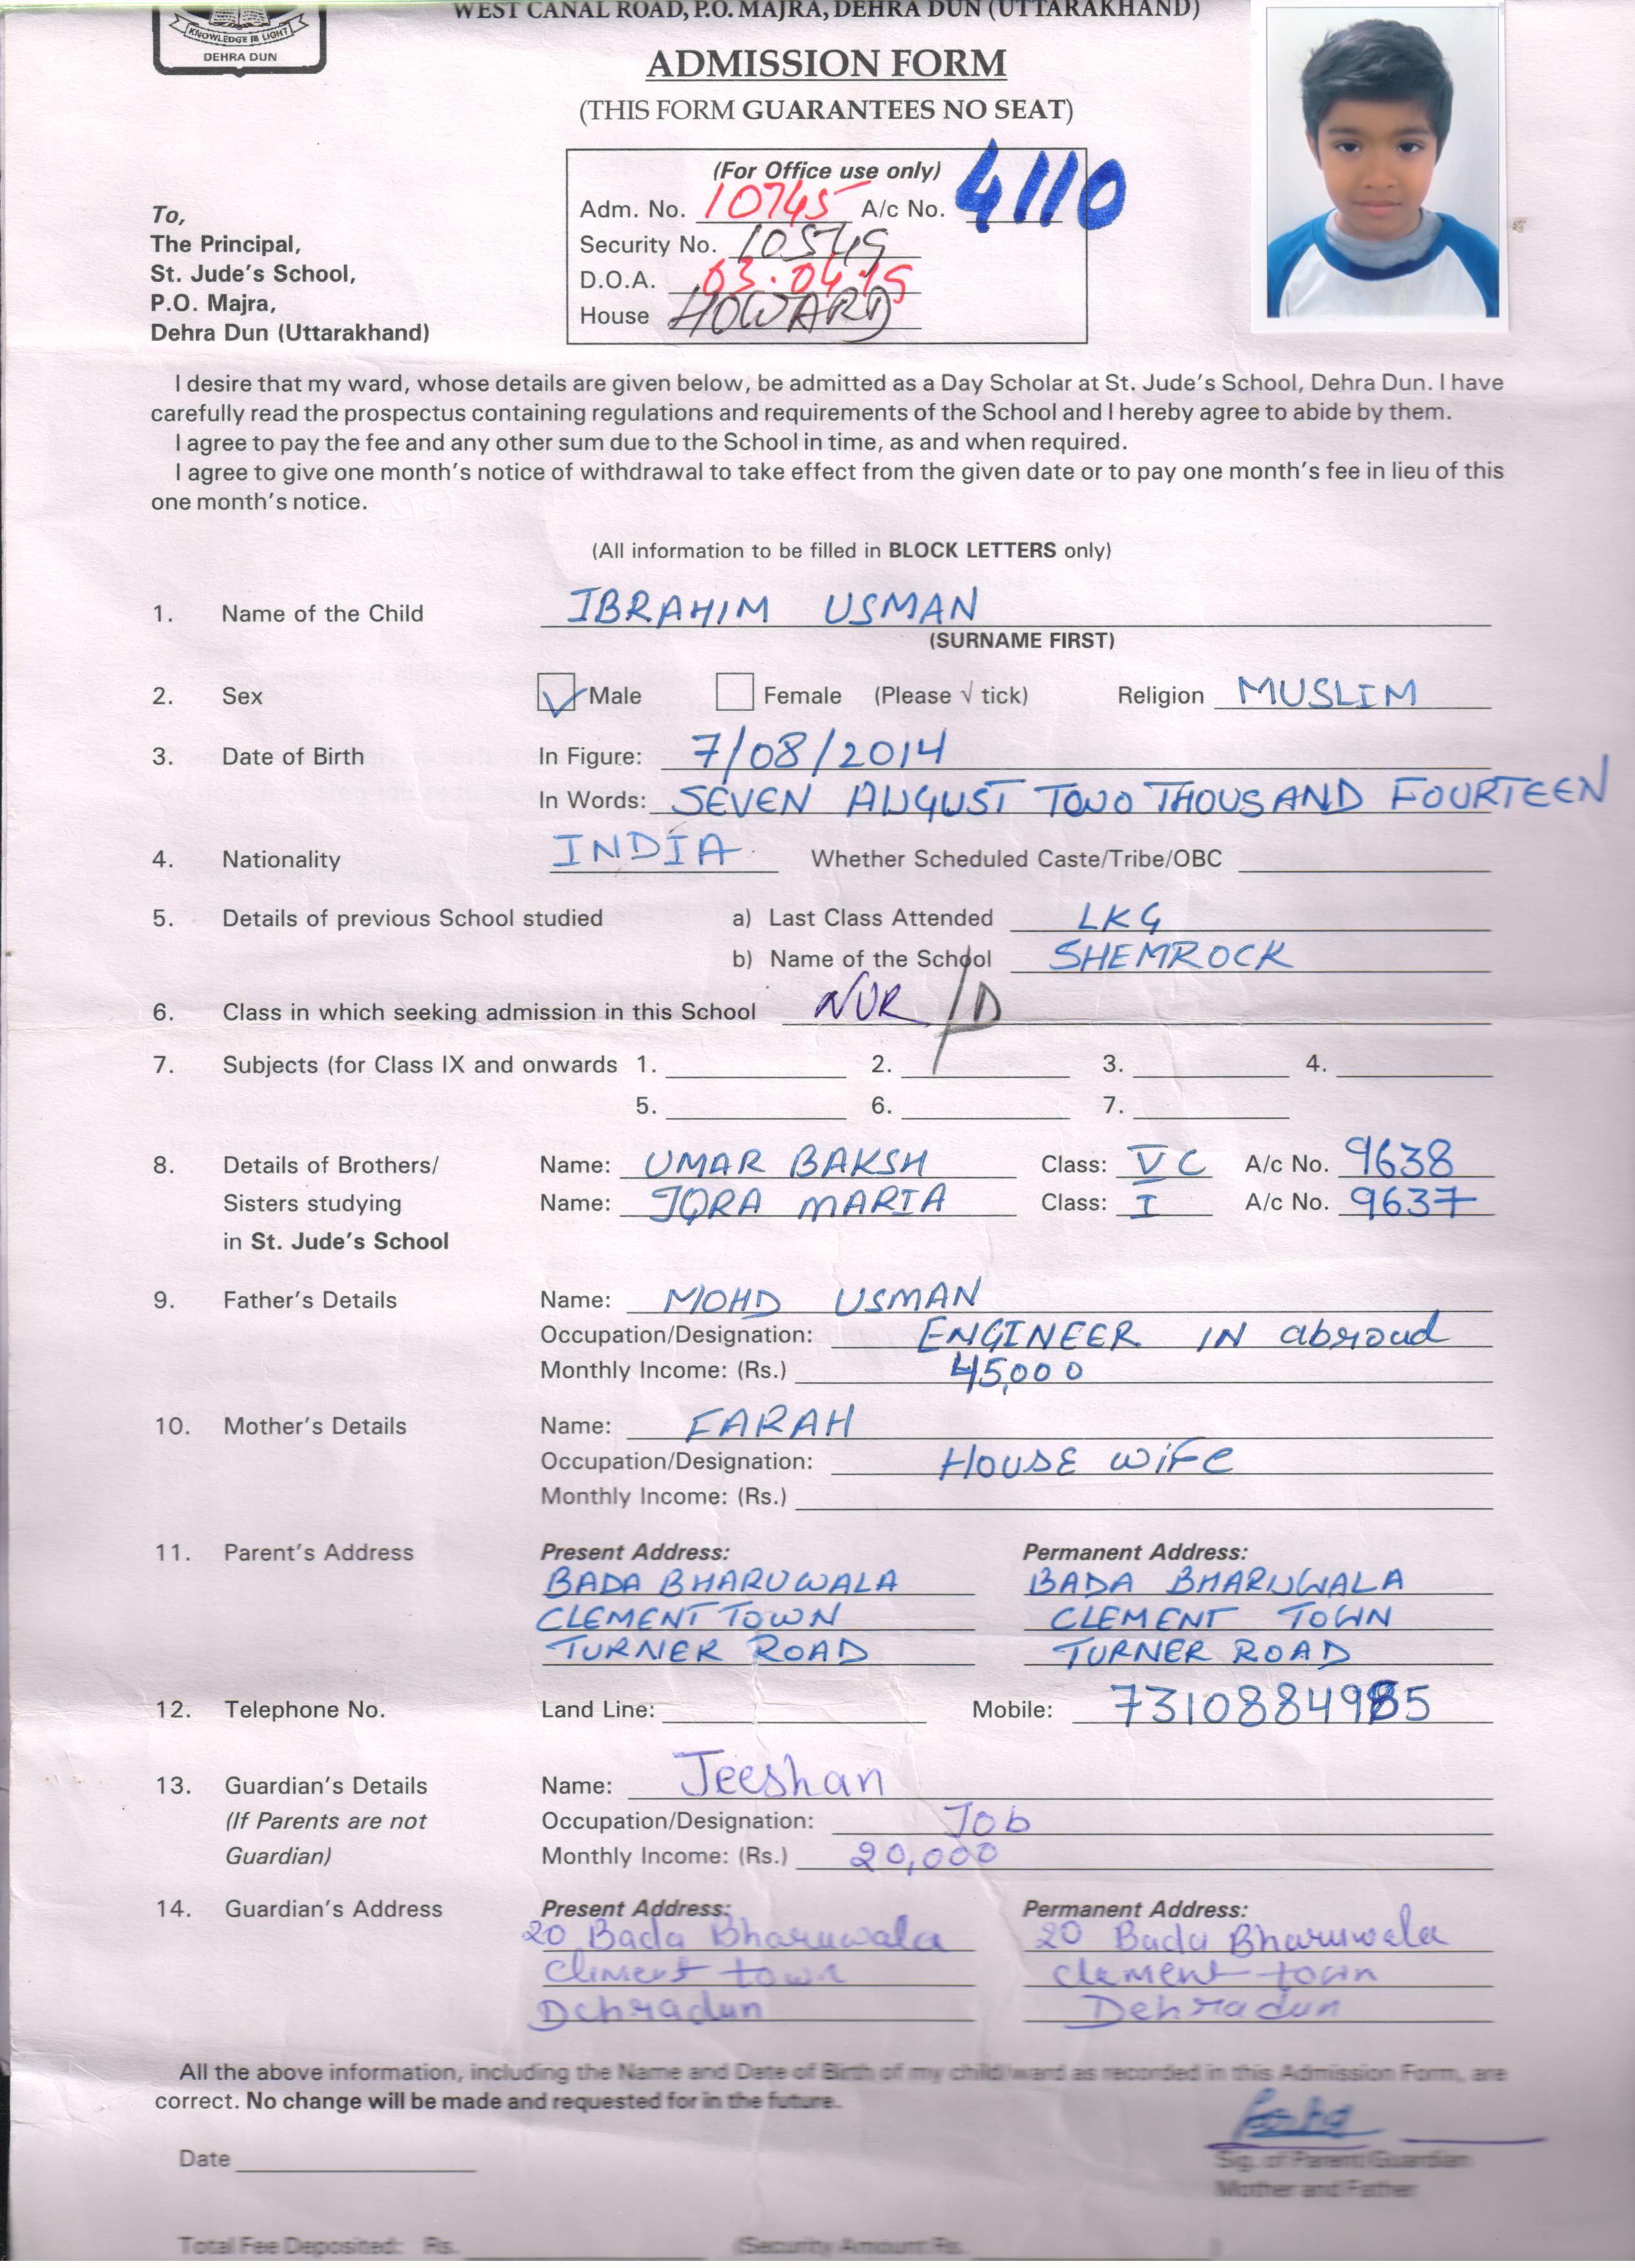 KNOWLEDGE IS LIGHT
DEHRA DUN
WEST CANAL ROAD, P.O. MAJRA, DEHRA DUN (UTTARAKHAND)
ADMISSION FORM
(THIS FORM GUARANTEES NO SEAT)
(For Office use only)
Adm. No. 10745 A/c No. 4110
Security No. 10549
D.O.A. 03.04.19
House HOWARD
To,
The Principal,
St. Jude's School,
P.O. Majra,
Dehra Dun (Uttarakhand)
I desire that my ward, whose details are given below, be admitted as a Day Scholar at St. Jude's School, Dehra Dun. I have
carefully read the prospectus containing regulations and requirements of the School and I hereby agree to abide by them.
I agree to pay the fee and any other sum due to the School in time, as and when required.
I agree to give one month's notice of withdrawal to take effect from the given date or to pay one month's fee in lieu of this
one month's notice.
(All information to be filled in BLOCK LETTERS only)
1. Name of the Child IBRAHIM USMAN
(SURNAME FIRST)
2. Sex Male Female (Please √ tick) Religion MUSLIM
3. Date of Birth In Figure: 7/08/2014
In Words: SEVEN AUGUST TWO THOUSAND FOURTEEN
4. Nationality INDIA Whether Scheduled Caste/Tribe/OBC
5. Details of previous School studied a) Last Class Attended LKG
b) Name of the School SHEMROCK
6. Class in which seeking admission in this School NUR/D
7. Subjects (for Class IX and onwards 1. 2. 3. 4.
5. 6. 7.
8. Details of Brothers/ Name: UMAR BAKSH Class: V C A/c No. 9638
Sisters studying Name: IQRA MARIA Class: I A/c No. 9637
in St. Jude's School
9. Father's Details Name: MOHD USMAN
Occupation/Designation: ENGINEER IN abroad
Monthly Income: (Rs.) 45,000
10. Mother's Details Name: FARAH
Occupation/Designation: HOUSE WIFE
Monthly Income: (Rs.)
11. Parent's Address Present Address: Permanent Address:
BADA BHARUWALA BADA BHARUWALA
CLEMENT TOWN CLEMENT TOWN
TURNER ROAD TURNER ROAD
12. Telephone No. Land Line: Mobile: 7310884985
13. Guardian's Details Name: Jeeshan
(If Parents are not Occupation/Designation: Job
Guardian) Monthly Income: (Rs.) 20,000
14. Guardian's Address Present Address: Permanent Address:
20 Bada Bharuwala 20 Bada Bharuwala
Clement town Clement town
Dehradun Dehradun
All the above information, including the Name and Date of Birth of my child/ward as recorded in this Admission Form, are
correct. No change will be made and requested for in the future.
Date
Sig. of Parent/Guardian
Mother and Father
Total Fee Deposited: Rs. (Security Amount Rs. )